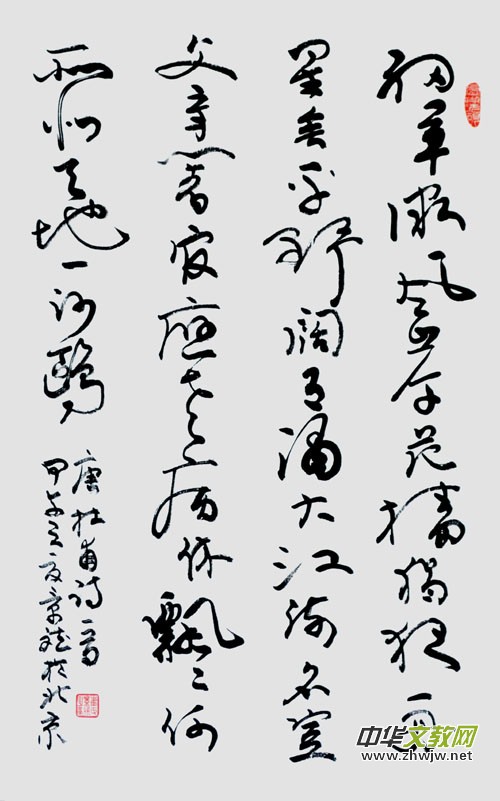 細草微風岸危檣獨夜舟
星垂平野闊月涌大江流名豈
文章著官應老病休飄〻何
所似天地一沙鷗
唐杜甫詩一首
甲午之夏景於北京
中华文教网
www.zhwjw.net